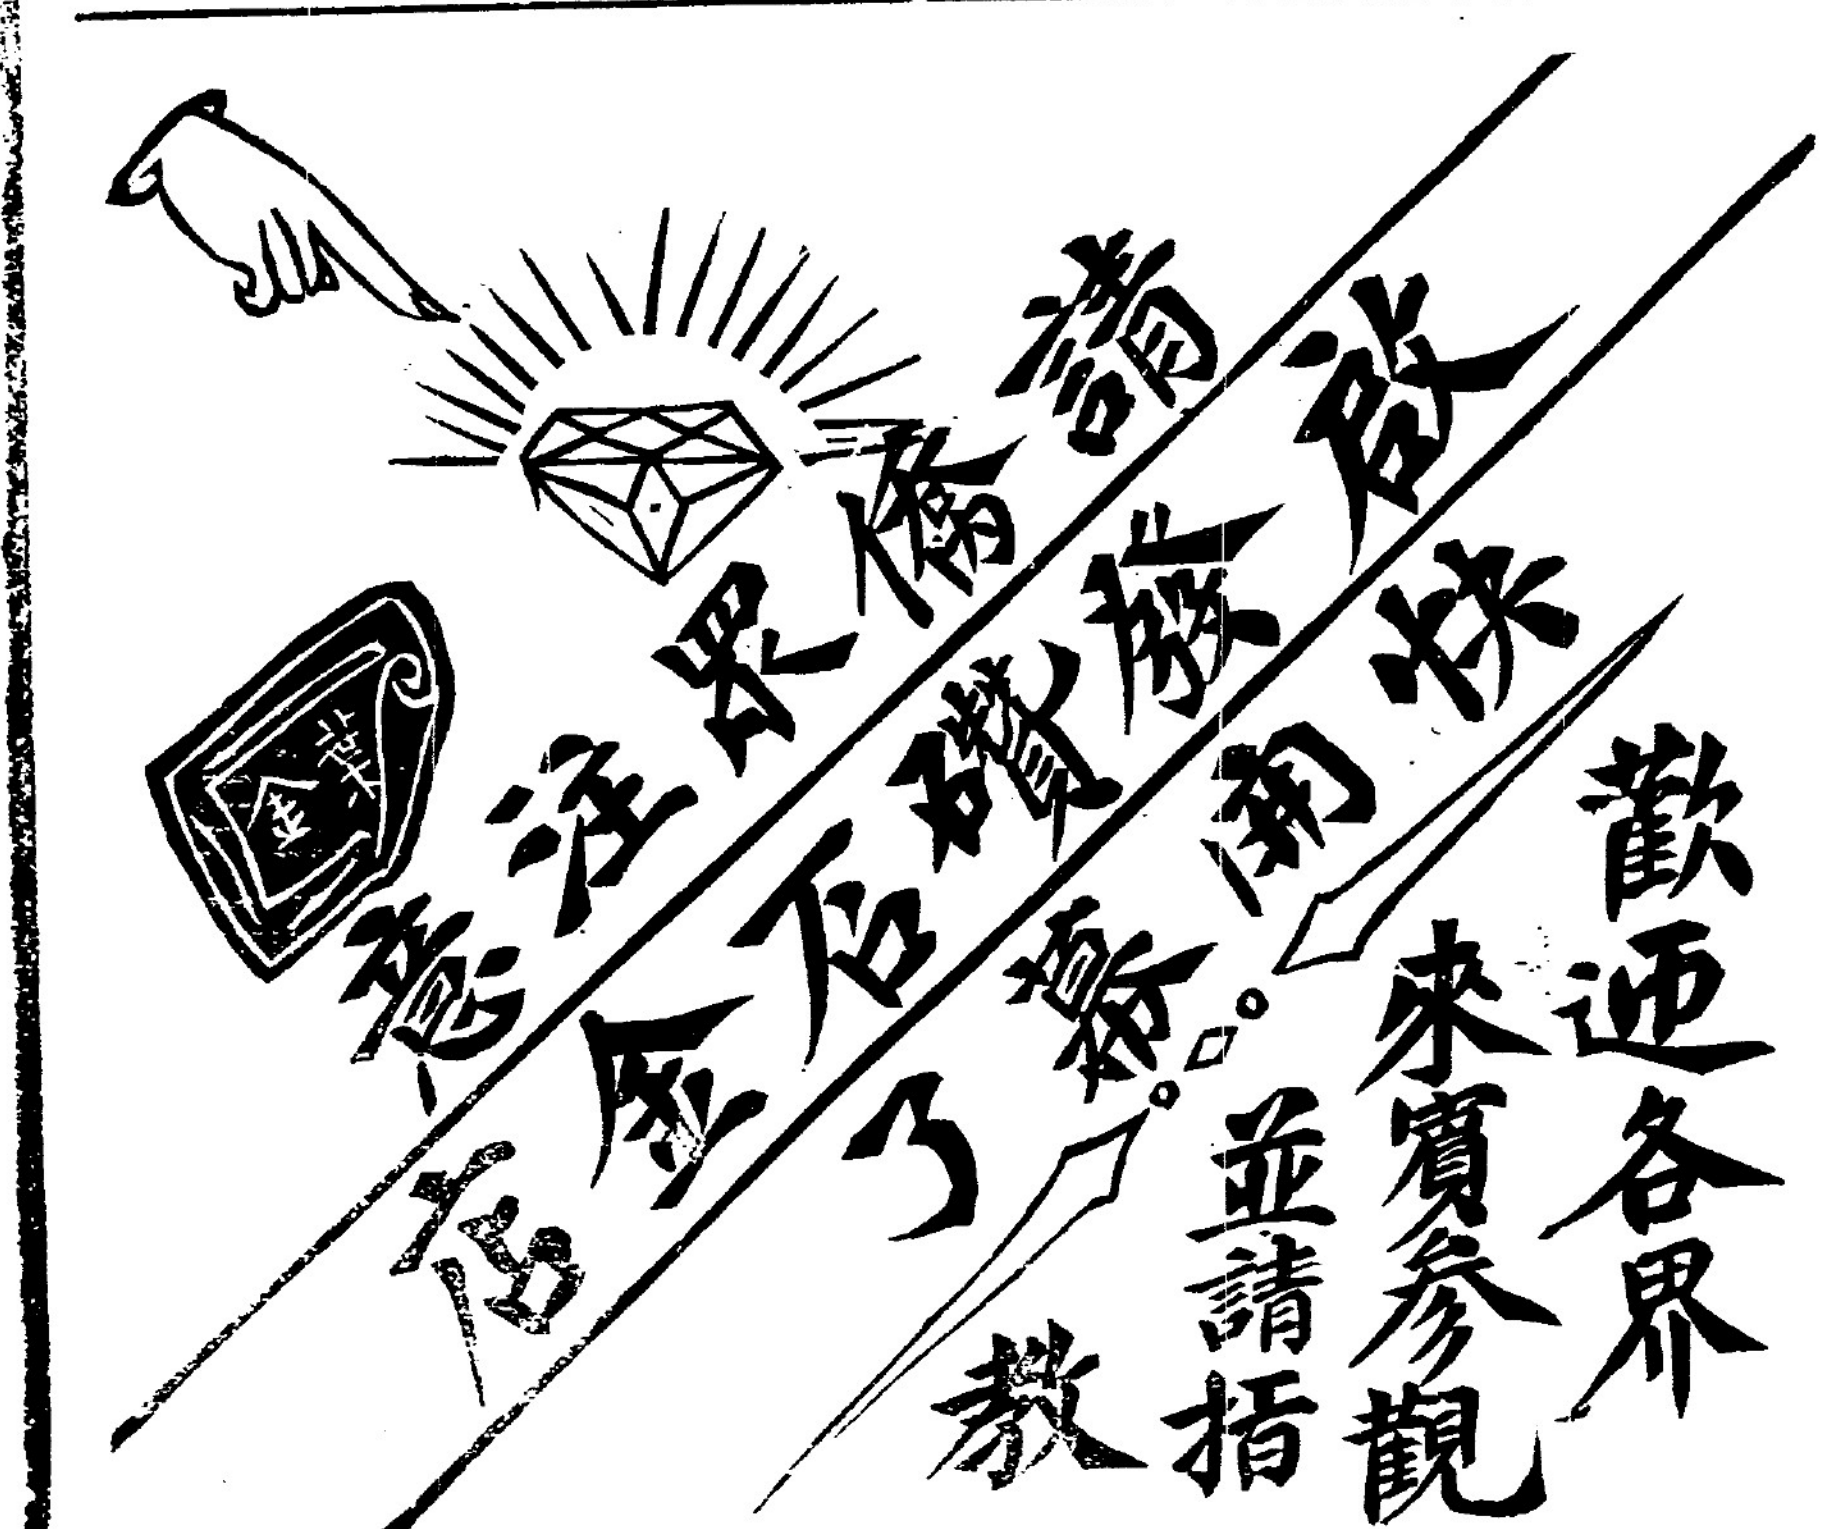 請僑界注意
啟發鑽石金店
快開幕了
歡迎各界
來賓參觀
並請指
教